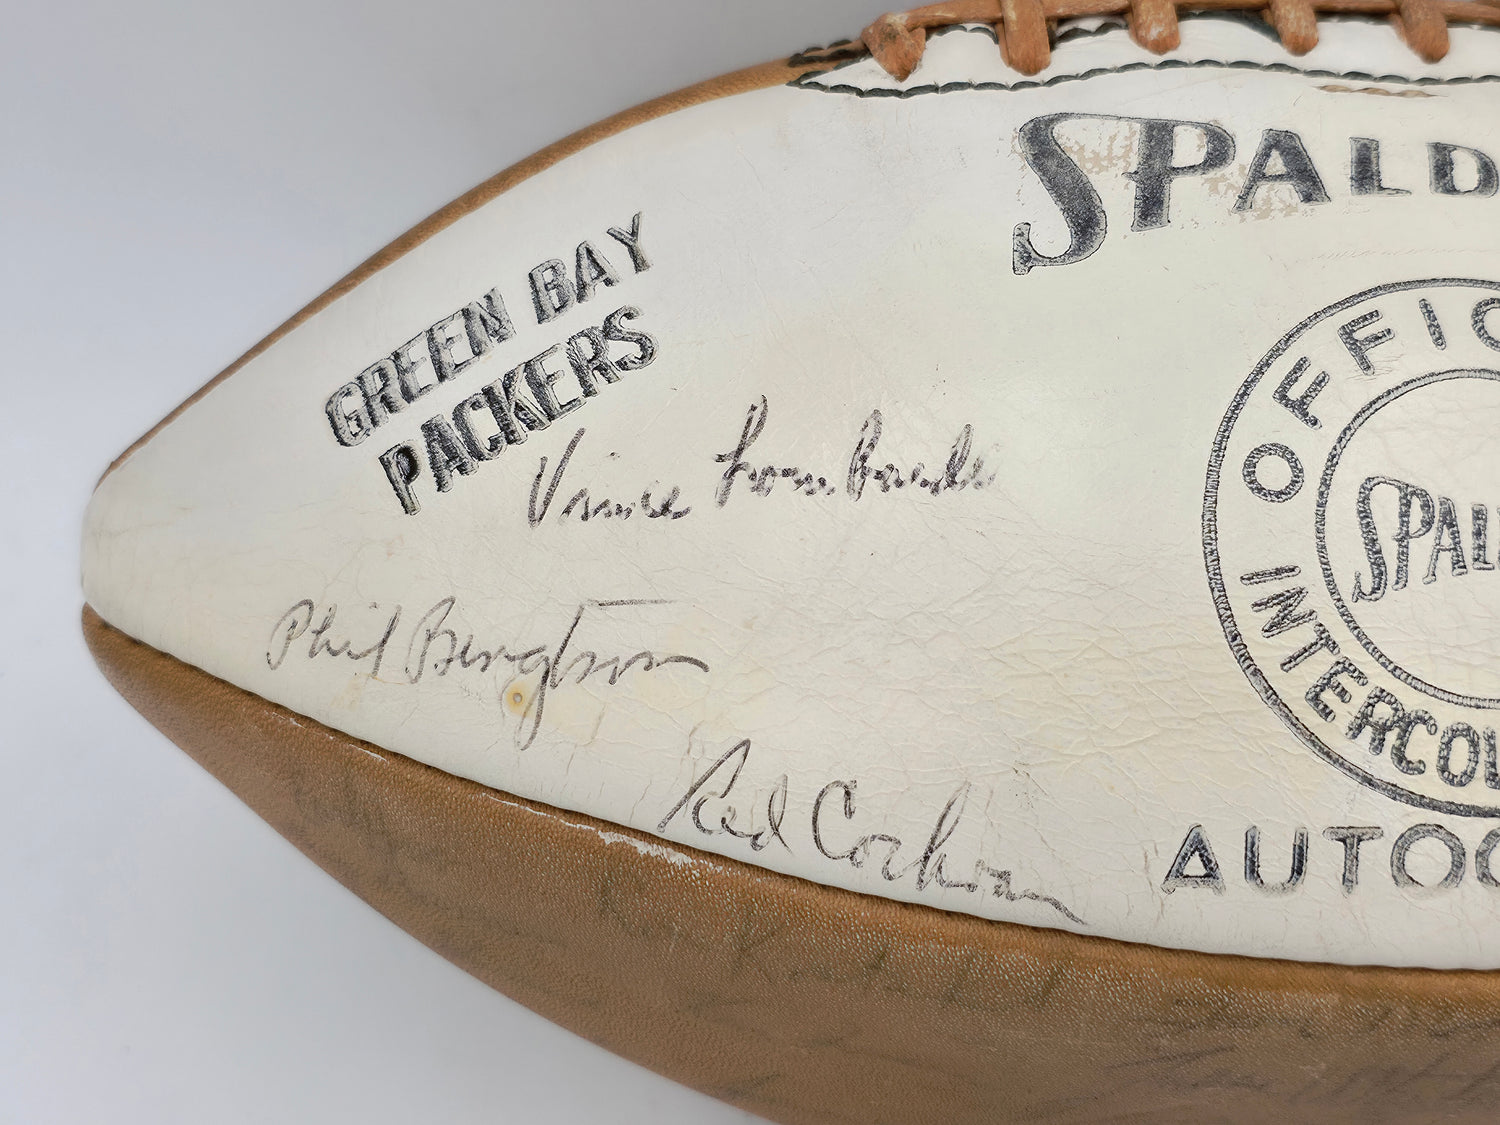 SPALD
GREEN BAY
PACKERS
Vince Lombardi
OFFIC
SPAL
INTERCOL
Phil Bengtson
Red Cochran
AUTOG